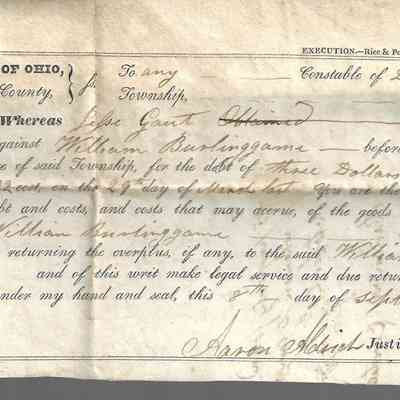 EXECUTION.—Rice & Po
OF OHIO, } ss. To any Constable of
County, Township,
Whereas Jesse Gant Obtained
against William Burlinggame — before
of said Township, for the debt of three Dollars
cost, on the 29th day of March last You are the
bt and costs, and costs that may accrue, of the goods
William Burlinggame
returning the overplus, if any, to the said William
and of this writ make legal service and due retur
under my hand and seal, this 8th day of Sept
Aaron Aldrich Justi